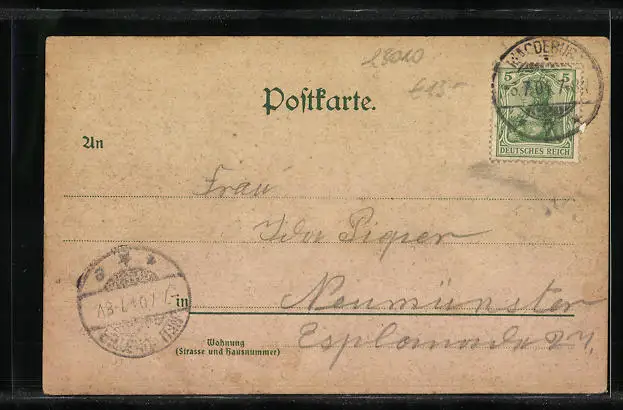 28010
€15-
Postkarte.
MAGDEBURG
5 5
DEUTSCHES REICH
An
Frau
Ida Pieper
in Neumünster
Wohnung
(Strasse und Hausnummer)
Esplanade 24.